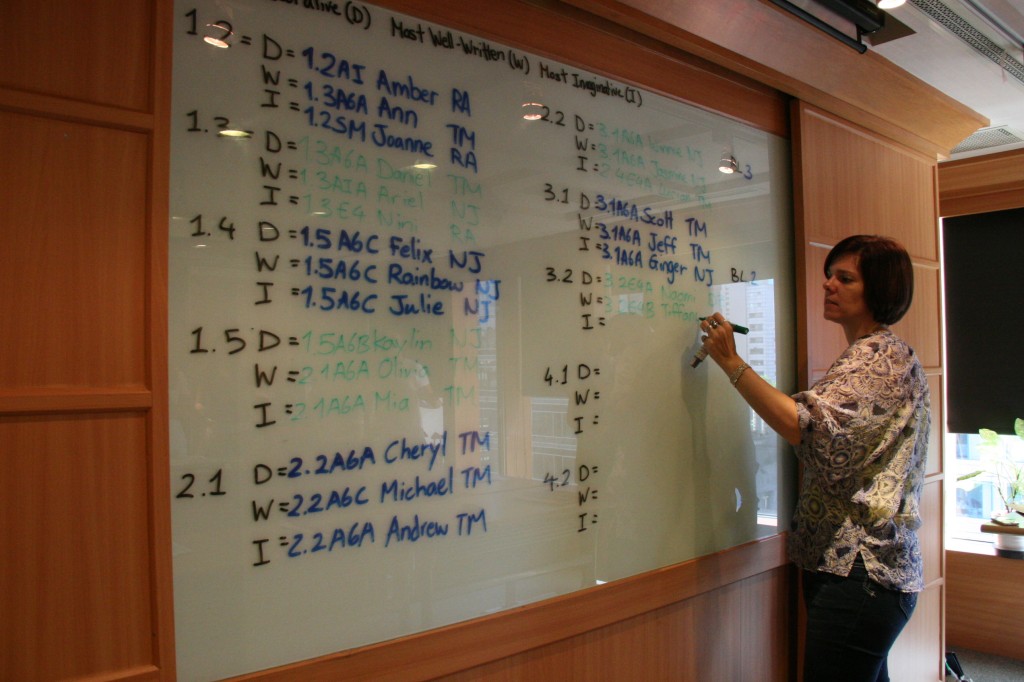 (D) Most Well-Written (W) Most Imaginative (I)
1.2 = D = 1.2AI Amber RA
W = 1.3A6A Ann TM
I = 1.2SM Joanne RA
1.3 = D = 1.3A6A Daniel TM
W = 1.3AIA Ariel NJ
I = 1.3E4 Nini RA
1.4 D = 1.5A6C Felix NJ
W = 1.5A6C Rainbow NJ
I = 1.5A6C Julie NJ
1.5 D = 1.5A6B Kaylin NJ
W = 2.1A6A Olivia TM
I = 2.1A6A Mia TM
2.1 D = 2.2A6A Cheryl TM
W = 2.2A6C Michael TM
I = 2.2A6A Andrew TM
2.2 D = 3.1A6A NJ
W = 3.1A6A NJ
I =
3.1 D 3.1A6A Scott TM
W = 3.1A6A Jeff TM
I = 3.1A6A Ginger NJ
3.2 D = 3.2E9A Naomi
W = Tiffany
I =
BL2
4.1 D =
W =
I =
4.2 D =
W =
I =